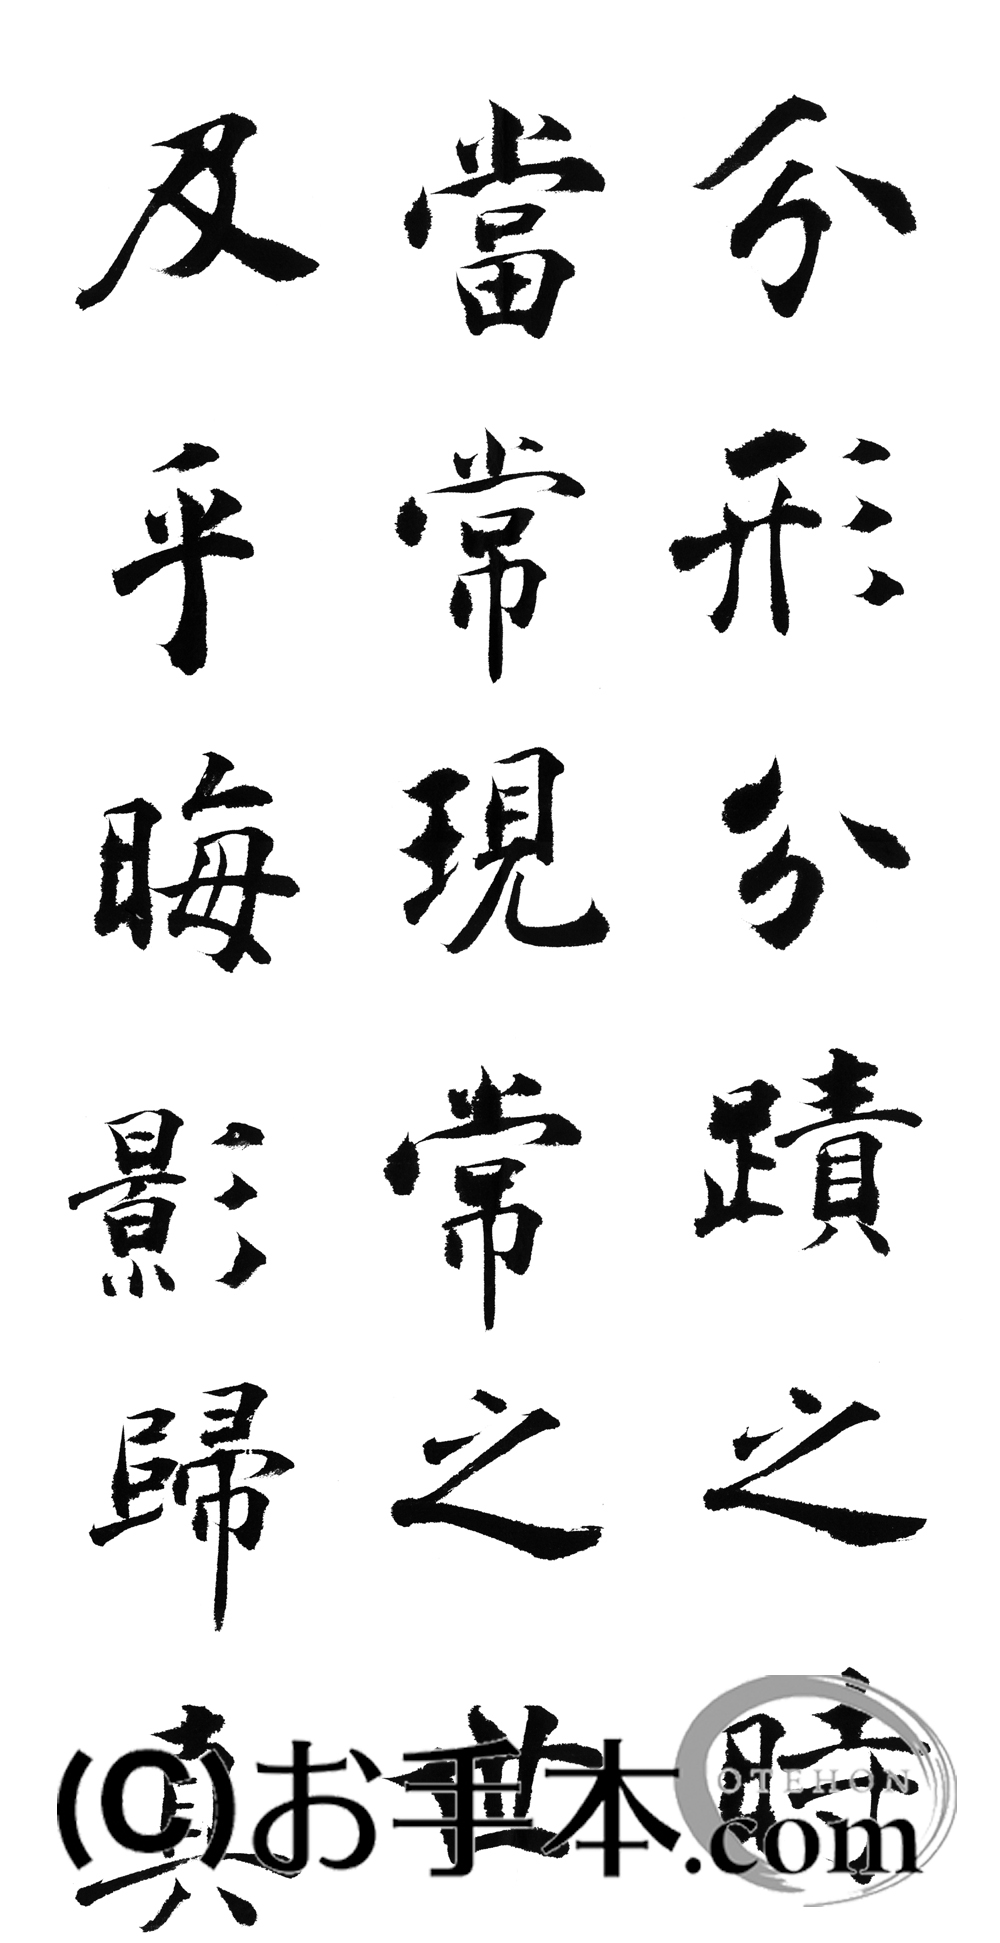 分形分蹟之時
當常現常之世
及乎晦影歸真
(C)お手本.com
OTEHON